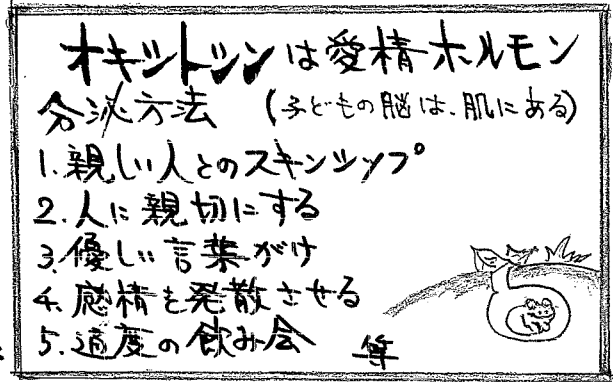 オキシトシンは愛情ホルモン
分泌方法 (子どもの脳は、肌にある)
1.親しい人とのスキンシップ
2.人に親切にする
3.優しい言葉がけ
4.感情を発散させる
5.適度の飲み会 等